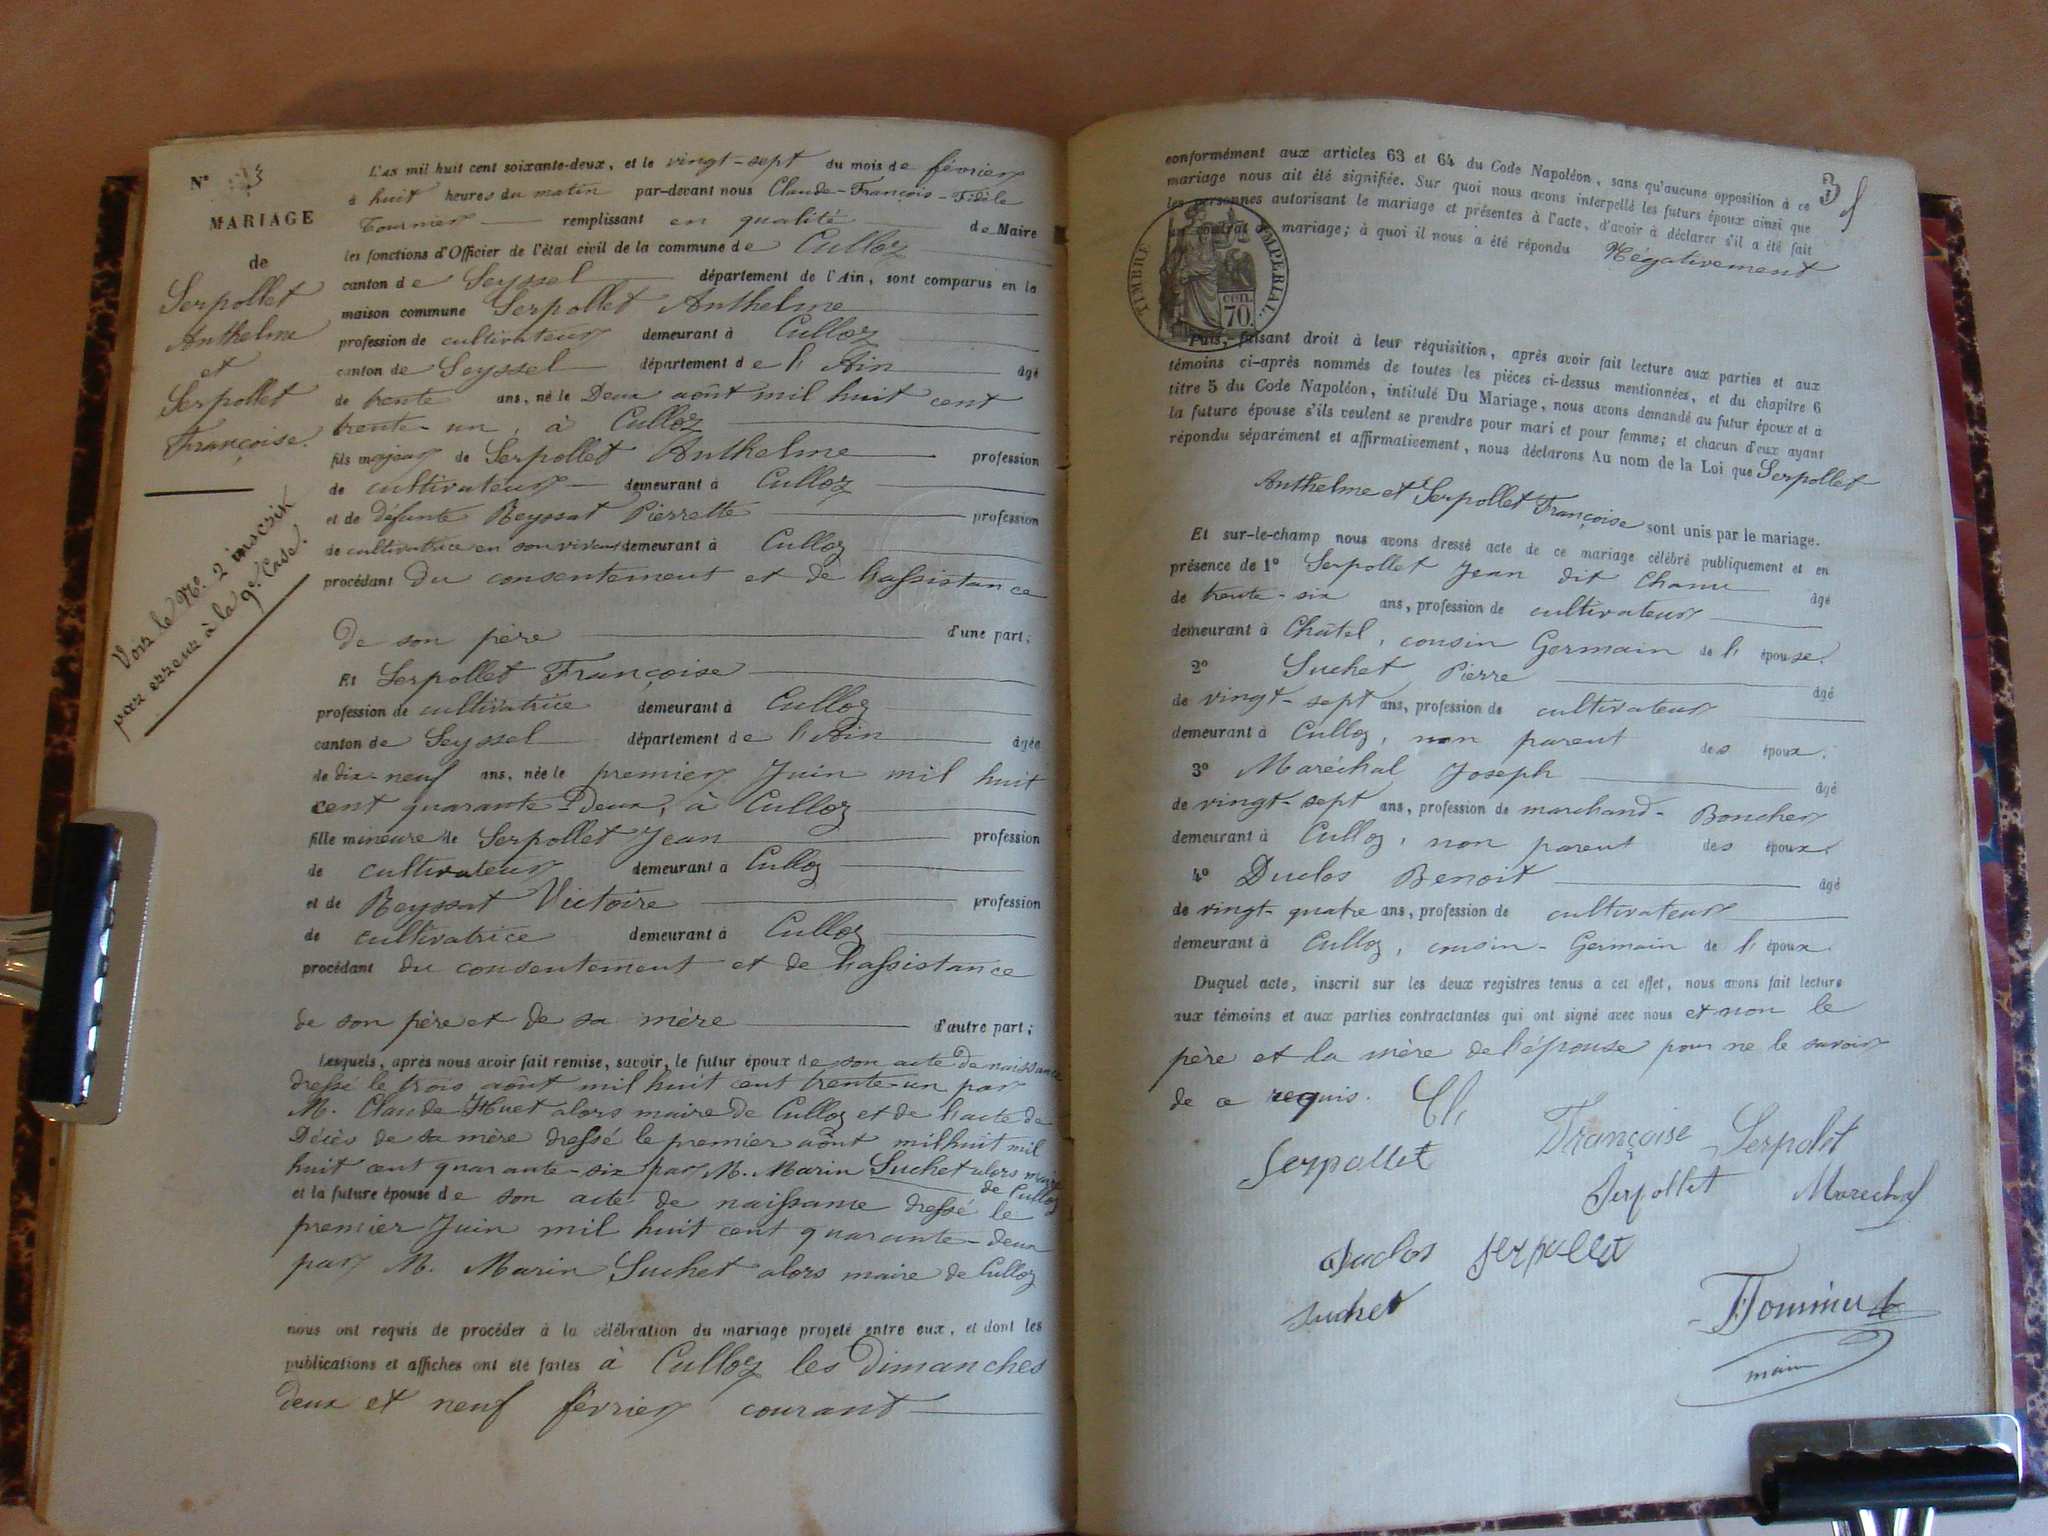 N° 3
MARIAGE
de
Serpollet
Anthelme
et
Serpollet
Françoise.
Voir le N°. 2 inscrit
par erreur à la 9e. Case.
L'AN mil huit cent soixante-deux, et le vingt-sept du mois de février
à huit heures du matin par-devant nous Claude-François-Fidèle
Tournier remplissant en qualité de Maire
les fonctions d'Officier de l'état civil de la commune de Culloz
canton de Seyssel département de l'Ain, sont comparus en la
maison commune Serpollet Anthelme
profession de cultivateur demeurant à Culloz
canton de Seyssel département de l'Ain âgé
de trente ans, né le Deux août mil huit cent
trente-un, à Culloz
fils majeur de Serpollet Anthelme profession
de cultivateur demeurant à Culloz
et de défunte Reyssat Pierrette profession
de cultivatrice en son vivant demeurant à Culloz
procédant du consentement et de l'assistance
De son père d'une part;
Et Serpollet Françoise
profession de cultivatrice demeurant à Culloz
canton de Seyssel département de l'Ain âgée
de dix-neuf ans, née le premier Juin mil huit
cent quarante-Deux, à Culloz
fille mineure de Serpollet Jean profession
de cultivateur demeurant à Culloz
et de Reyssat Victoire profession
de cultivatrice demeurant à Culloz
procédant du consentement et de l'assistance
de son père et de sa mère d'autre part;
Lesquels, après nous avoir fait remise, savoir, le futur époux de son acte de naissance
dressé le trois août mil huit cent trente-un par
M. Claude Huet alors maire de Culloz et de l'acte de
Décès de sa mère dressé le premier août mil huit mil
huit cent quarante-six par M. Marin Suchet alors maire
de Culloz
et la future épouse de son acte de naissance dressé le
premier Juin mil huit cent quarante-deux
par M. Marin Suchet alors maire de Culloz
nous ont requis de procéder à la célébration du mariage projeté entre eux, et dont les
publications et affiches ont été faites à Culloz les Dimanches
deux et neuf février courant
3
conformément aux articles 63 et 64 du Code Napoléon, sans qu'aucune opposition à ce
mariage nous ait été signifiée. Sur quoi nous avons interpellé les futurs époux ainsi que
les personnes autorisant le mariage et présentes à l'acte, d'avoir à déclarer s'il a été fait
un contrat de mariage; à quoi il nous a été répondu Négativement
TIMBRE IMPERIAL.
cen.
70.
Puis, faisant droit à leur réquisition, après avoir fait lecture aux parties et aux
témoins ci-après nommés de toutes les pièces ci-dessus mentionnées, et du chapitre 6
titre 5 du Code Napoléon, intitulé Du Mariage, nous avons demandé au futur époux et à
la future épouse s'ils veulent se prendre pour mari et pour femme; et chacun d'eux ayant
répondu séparément et affirmativement, nous déclarons Au nom de la Loi que Serpollet
Anthelme et Serpollet Françoise sont unis par le mariage.
Et sur-le-champ nous avons dressé acte de ce mariage célébré publiquement et en
présence de 1° Serpollet Jean dit Chanu âgé
de trente-six ans, profession de cultivateur
demeurant à Châtel, cousin Germain de l'épouse.
2° Suchet Pierre âgé
de vingt-sept ans, profession de cultivateur
demeurant à Culloz, non parent des époux.
3° Maréchal Joseph âgé
de vingt-sept ans, profession de marchand-Boucher
demeurant à Culloz, non parent des époux.
4° Duclos Benoit âgé
de vingt-quatre ans, profession de cultivateur
demeurant à Culloz, cousin-Germain de l'époux.
Duquel acte, inscrit sur les deux registres tenus à cet effet, nous avons fait lecture
aux témoins et aux parties contractantes qui ont signé avec nous et non le
père et la mère de l'épouse pour ne le savoir
de ce requis.
Serpollet Françoise Serpolét
Serpollet Marechal
Duclos Serpollet
Suchet
maire